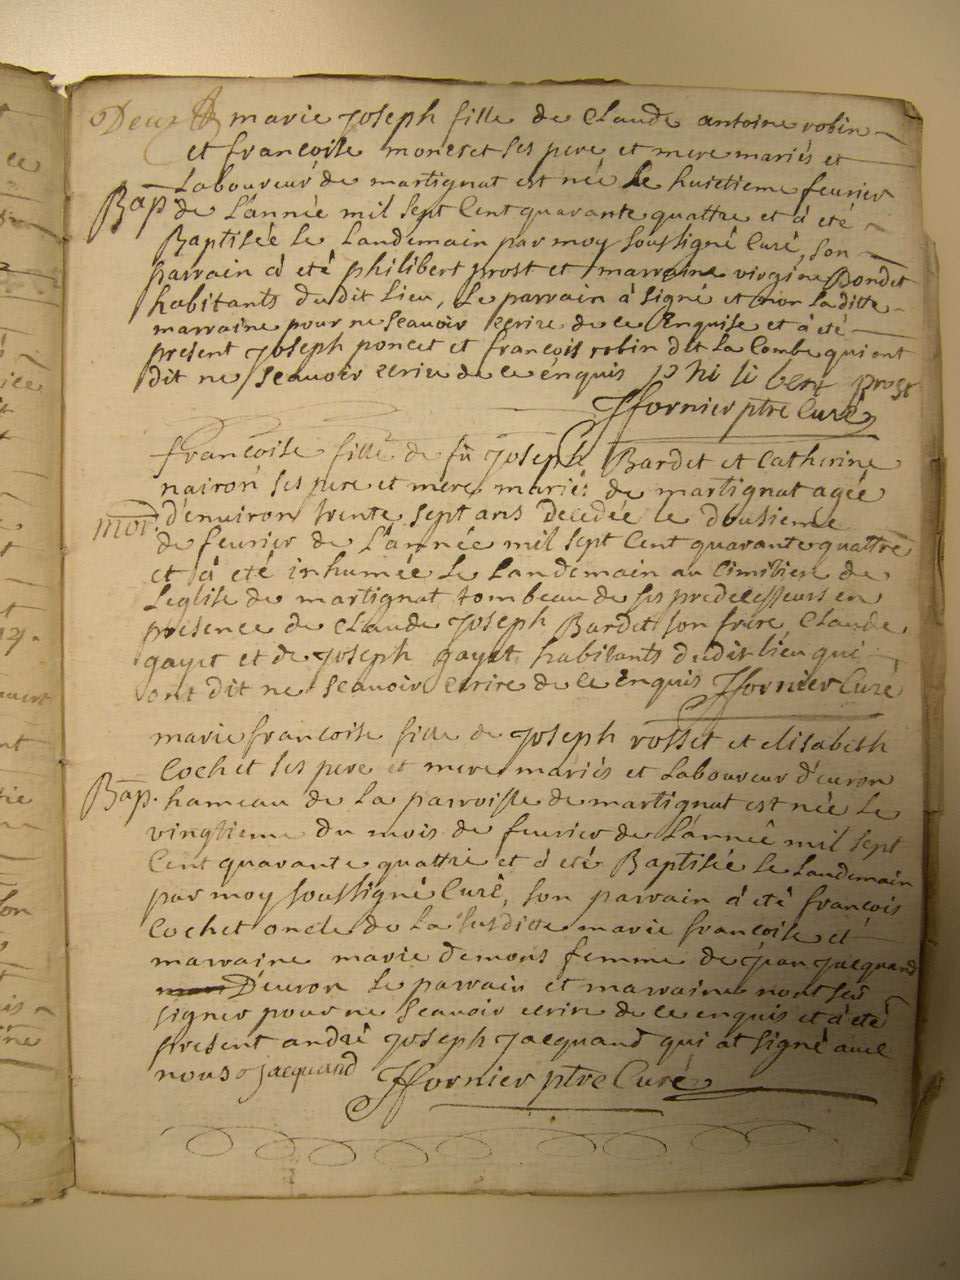 Deux marie joseph fille de Claude antoine robin
et francoise moncet ses pere et mere mariés et
Laboureur de martignat est née Le huictieme feurier
Bap. de L'année mil sept Cent quarante quattre et á eté
Baptisée Le Landemain par moy soussigné Curé, son
parrain á eté philibert prost et marraine virgine Bondet
habitants dudit Lieu, Le parrain á signé et non laditte
marraine pour ne scauoir ecrire de ce Enquise et á eté
présent joseph poncet et francois robin dit La Combe qui ont
dit ne scauoir ecrire de ce enquis philibert prost
Jfornier ptre Curé
francoise fille de fû joseph Bardet et Catherine
nairon ses pere et mere mariés de martignat agée
mor. d'enuiron trente sept ans decedée le dousieme
de feurier de L'année mil sept Cent quarante quattre
et á eté inhumée Le Landemain au cimitiere de
Leglise de martignat tombeau de ses predecesseurs en
présence de Claude joseph Bardet son frere, Claude
gayet et de joseph gayet habitants dudit lieu qui
ont dit ne scauoir ecrire de ce Enquis Jfornier Curé
marie francoise fille de joseph rosset et elisabeth
Cochet ses pere et mere mariés et Laboureur d'euron
Bap. hameau de La parroisse de martignat est née Le
vingtieme du mois de feurier de L'année mil sept
Cent quarante quattre et á eté Baptisée Le Landemain
par moy soussigné Curé, son parrain á eté francois
Cochet oncle de La susditte marie francoise et
marraine marie demons femme de jean jacquand
D'euron Le parrain et marraine nont sçu
signer pour ne scauoir ecrire de ce enquis et á eté
present andré joseph jacquand qui at signé auec
nous jacquand Jfornier ptre Curé